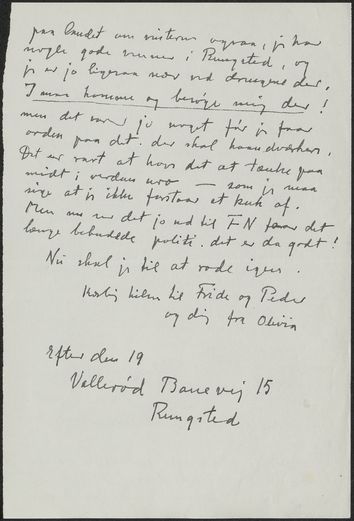 paa Landet om vinteren ogsaa, jeg har
nogle gode venner i Rungsted, og
jeg er jo ligesaa nær ved drengene der,
I maa komme og besøge mig der!
men det varer jo noget før jeg faar
orden paa det. der skal haandværkere.
Det er rart at have det at tænke paa
midt i verdens uro — som jeg maa
sige at jeg ikke forstaar et kuk af.
Men nu ser det jo ud til FN faar det
længe bebudede politi. det er da godt!
Nu skal jeg til at rode igen.
Kærlig hilsen til Fride og Peder
og dig fra Olivia
Efter den 19
Vallerød Banevej 15
Rungsted